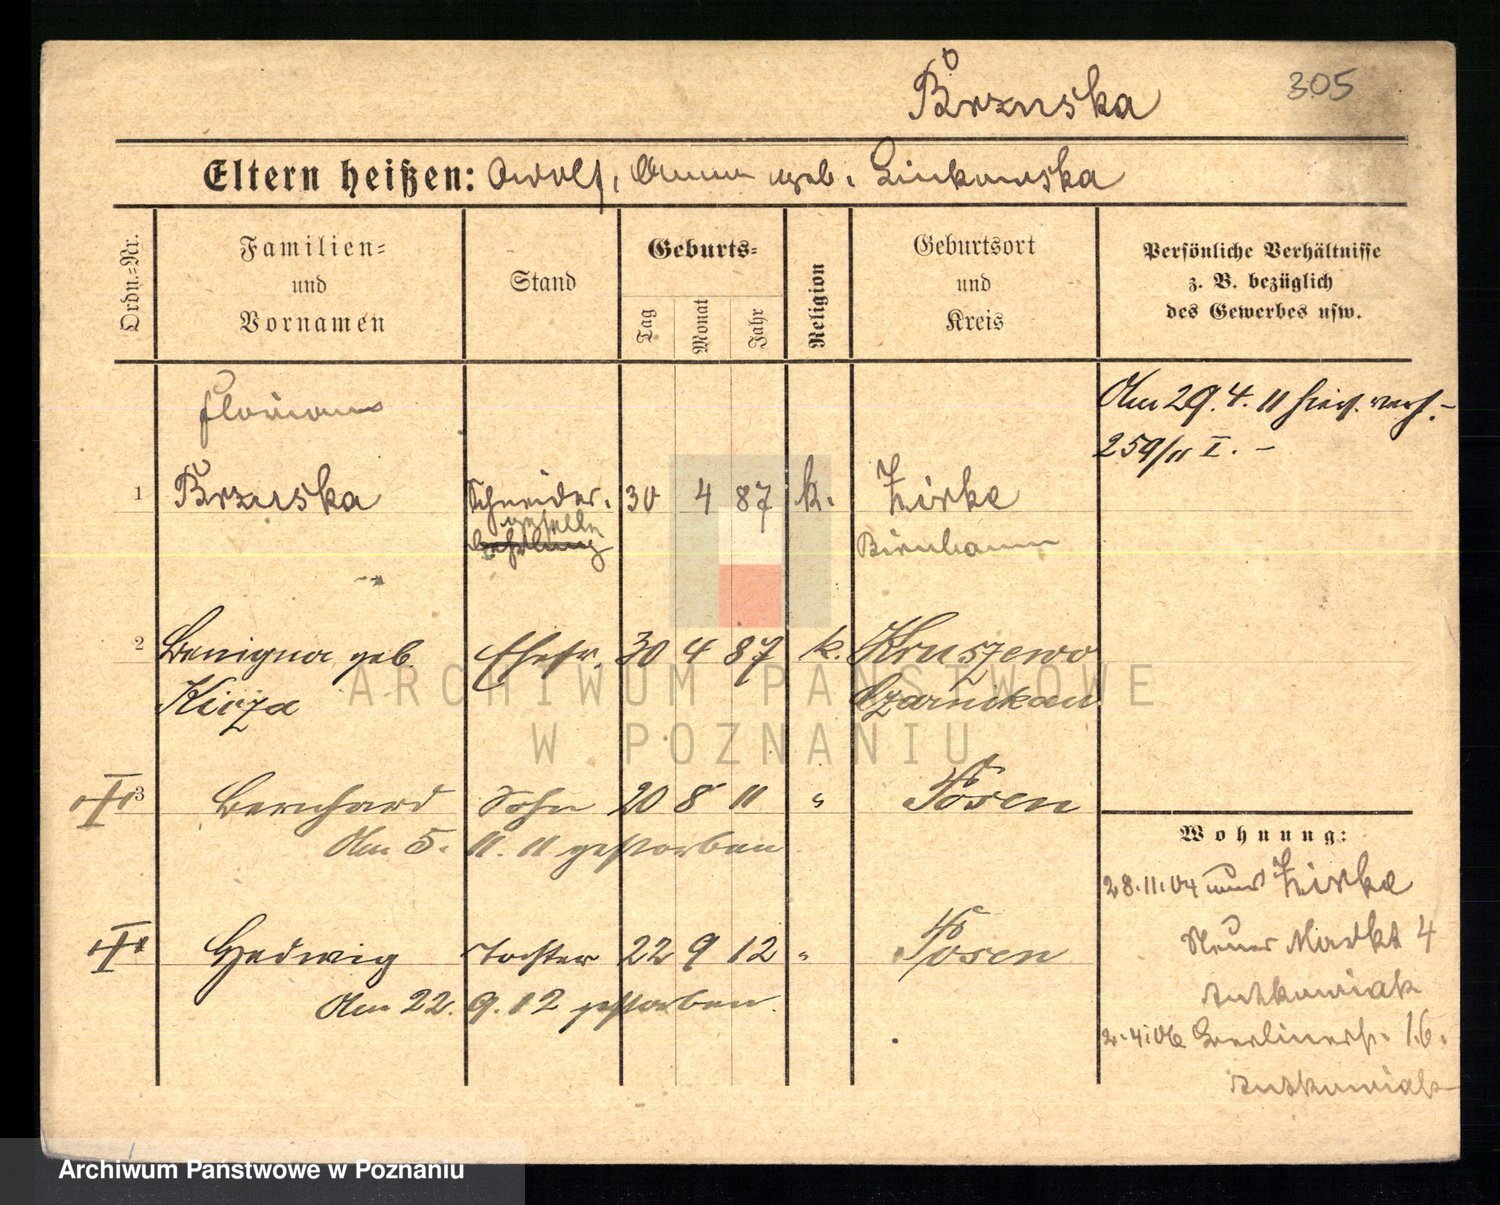 Brzuska 305
Eltern heißen: Adolf, Anna geb. Linkowska
Ordn.=Nr.
Familien=
und
Vornamen
Stand
Geburts=
Tag
Monat
Jahr
Religion
Geburtsort
und
Kreis
Persönliche Verhältnisse
z. B. bezüglich
des Gewerbes usw.
Am 29. 4. 11 hier verh.-
259/11 I. -
Florian
1 Brzuska Schneider- 30 4 87 k. Zirke
geselle
Birnbaum
2 Benigna geb. Ehefr. 30 4 87 k. Kruszewo
Kirza Czarnikau
3 Bernhard Sohn 20 8 11 " Posen
Am 5. 11. 11 gestorben
Hedwig Tochter 22 9 12 " Posen
Am 22. 9. 12 gestorben.
Wohnung:
28.11.04 aus Zirke
Neuer Markt 4
Antkowiak
2.4.06 Berlinerstr. 16.
Antkowiak
ARCHIWUM PAŃSTWOWE
W POZNANIU
Archiwum Państwowe w Poznaniu